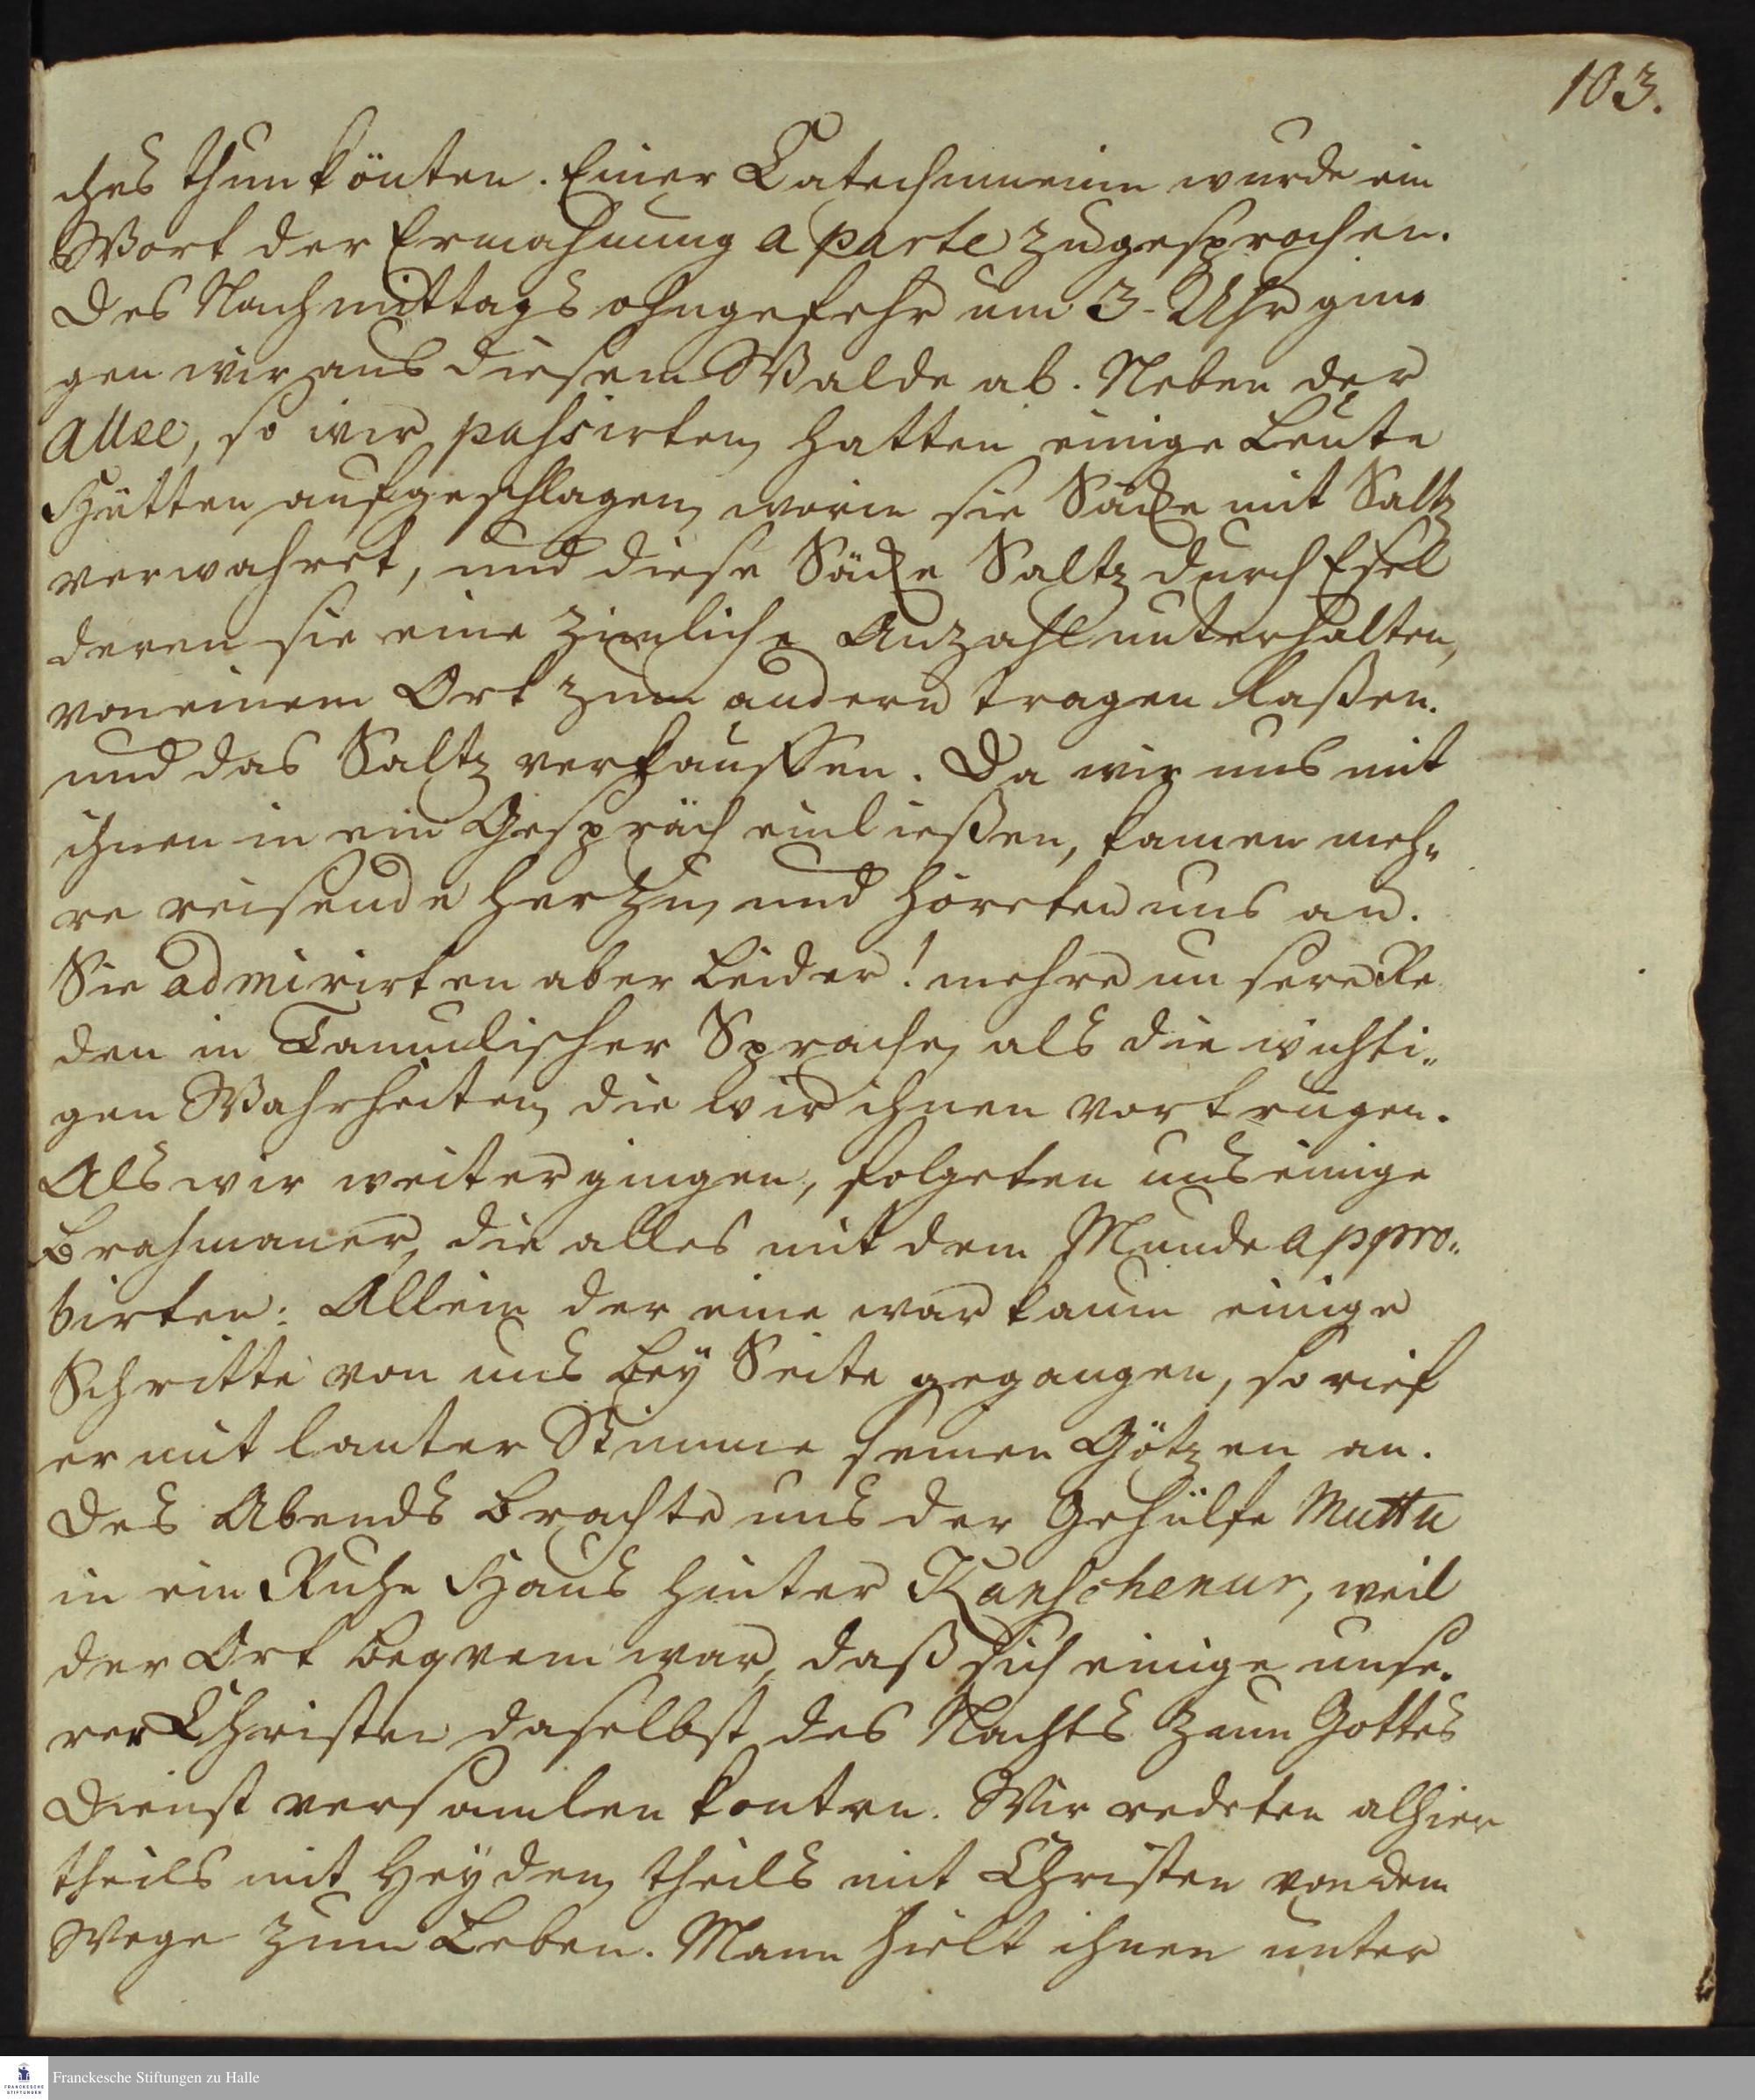 103.
ches thun könten. Einer Catechumenin wurde ein
Wort der Ermahnung a parte zugesprochen.
Des Nachmittags ohngefehr um 3 Uhr gin-
gen wir aus diesem Walde ab. Neben der
Allee, so wir passirten, hatten einige Leute
Hütten aufgeschlagen, worin sie Säcke mit Saltz
verwahret, und diese Säcke Saltz durch Esel
deren sie eine zimliche Anzahl unterhalten,
von einem Ort zum andern tragen laßen.
und das Saltz verkauffen. Da wir uns mit
ihnen in ein Gespräch einließen, kamen meh-
re reisende herzu, und höreten uns an.
Sie admirirten aber leider! mehr unsere Re
den in Tamulischer Sprache, als die wichti-
gen Wahrheiten, die wir ihnen vortrugen.
Als wir weiter gingen, folgeten uns einige
Brahmaner, die alles mit dem Munde appro-
birten: Allein der eine war kaum einige
Schritte von uns bey Seite gegangen, so rief
er mit lauter Stimme seinen Götzen an.
Des Abends brachte uns der Gehülfe Muttu
in ein Ruhe Haus hinter Kanschenur, weil
der Ort beqvem war, daß sich einige unse-
rer Christen daselbst des Nachts zum Gottes
Dienst versamlen konten. Wir redeten alhier
theils mit Heyden, theils mit Christen von dem
Wege zum Leben. Mann hielt ihnen unter
Franckesche Stiftungen zu Halle
FRANCKESCHE
STIFTUNGEN